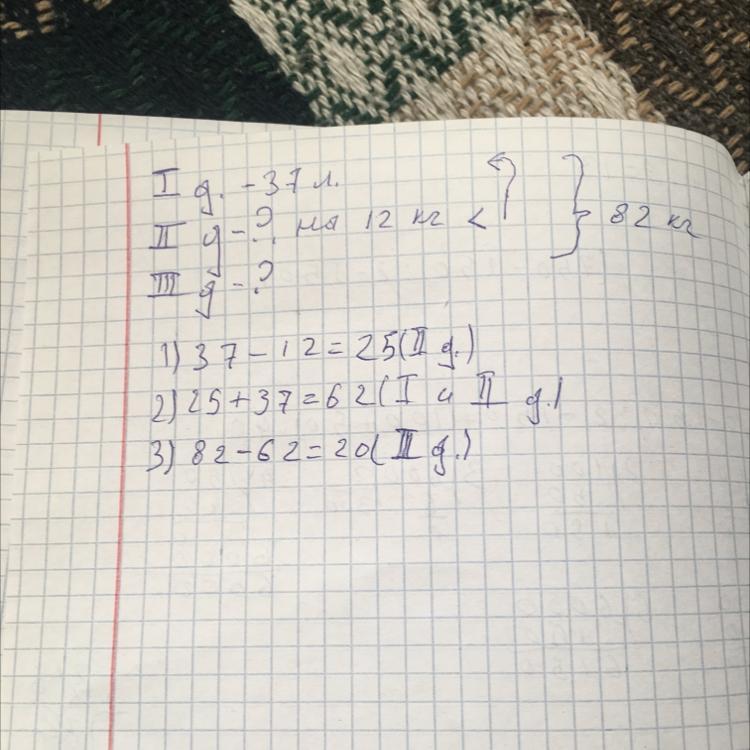 I д. - 37 л.
II д - ? на 12 кг < } 82 кг
III д - ?
1) 37 - 12 = 25 (II д.)
2) 25 + 37 = 62 (I и II д.)
3) 82 - 62 = 20 (III д.)